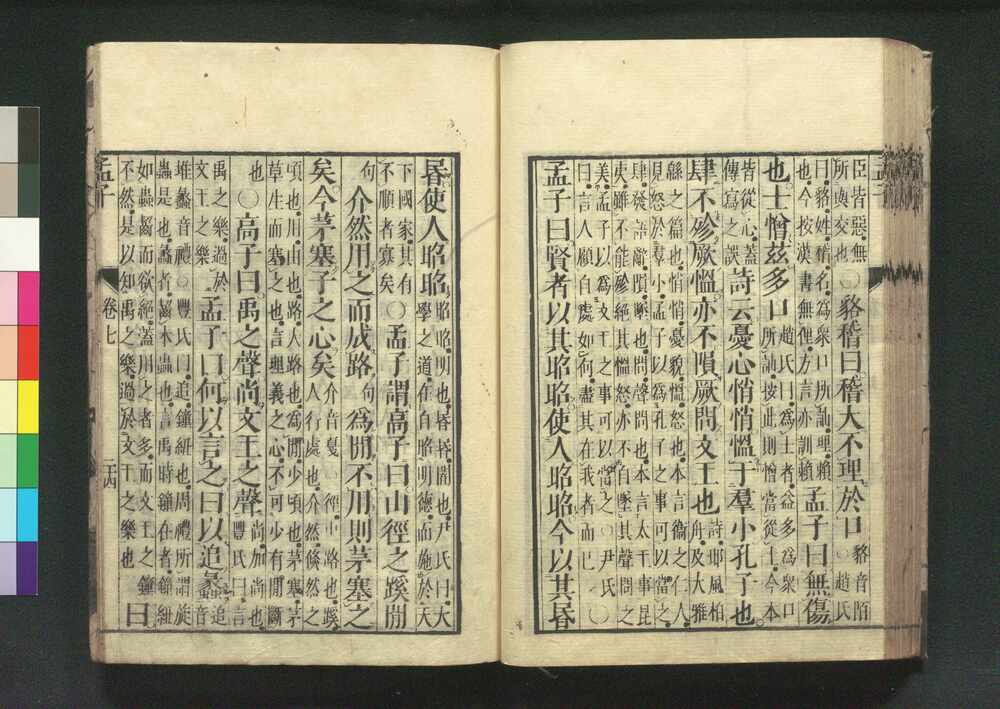 臣皆惡無
所與交也
○貉稽曰稽大不理於口
貉音陌
○趙氏
曰貉姓稽名為衆口所訕理賴
也今按漢書無俚方言亦訓賴
孟子曰無傷
也士憎茲多口
趙氏曰為士者益多為衆口
所訕按此則憎當從土今本
皆從心蓋
傳寫之誤
詩云憂心悄悄慍于羣小孔子也
肆不殄厥慍亦不隕厥問文王也
詩邶風柏
舟及大雅
緜之篇也悄悄憂貌慍怒也本言衛之仁人
見怒於羣小孟子以為孔子之事可以當之
肆發語辭隕墜也問聲問也本言太王事昆
夷雖不能殄絕其慍怒亦不自墜其聲問之
美孟子以為文王之事可以當之○尹氏
曰言人顧自處如何盡其在我者而已
○
孟子曰賢者以其昭昭使人昭昭今以其昏
昬使人昭昭
昭昭明也昬昬闇也尹氏曰大
學之道在自昭明德而施於天
下國家其有
不順者寡矣
○孟子謂高子曰山徑之蹊閒
句介然用之而成路句為閒不用則茅塞之
矣今茅塞子之心矣
介音戛○徑小路也蹊
人行處也介然倏然之
頃也用由也路大路也為閒少頃也茅塞茅
草生而塞之也言理義之心不可少有閒斷
也
○高子曰禹之聲尚文王之聲
尚加尚也
豐氏曰言
禹之樂過於
文王之樂
孟子曰何以言之曰以追蠡
追
音
堆蠡音禮○豐氏曰追鐘紐也周禮所謂旋
蟲是也蠡者齧木蟲也言禹時鐘在者鐘紐
如蟲齧而欲絕蓋用之者多而文王之鐘
不然是以知禹之樂過於文王之樂也
曰
孟子
卷七